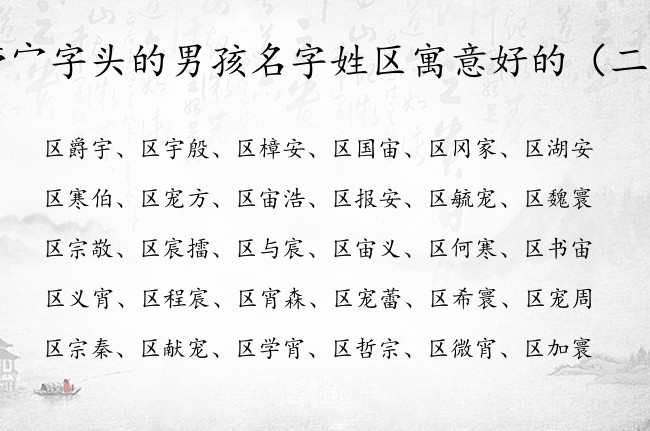 宀字头的男孩名字姓区寓意好的（二
区爵宇、区宇殷、区樟安、区国宙、区冈家、区湖安
区寒伯、区宠方、区宙浩、区报安、区毓宠、区魏寰
区宗敬、区宸擂、区与宸、区宙义、区何寒、区书宙
区义宵、区程宸、区宵森、区宠蕾、区希寰、区宠周
区宗秦、区献宠、区学宵、区哲宗、区微宵、区加寰